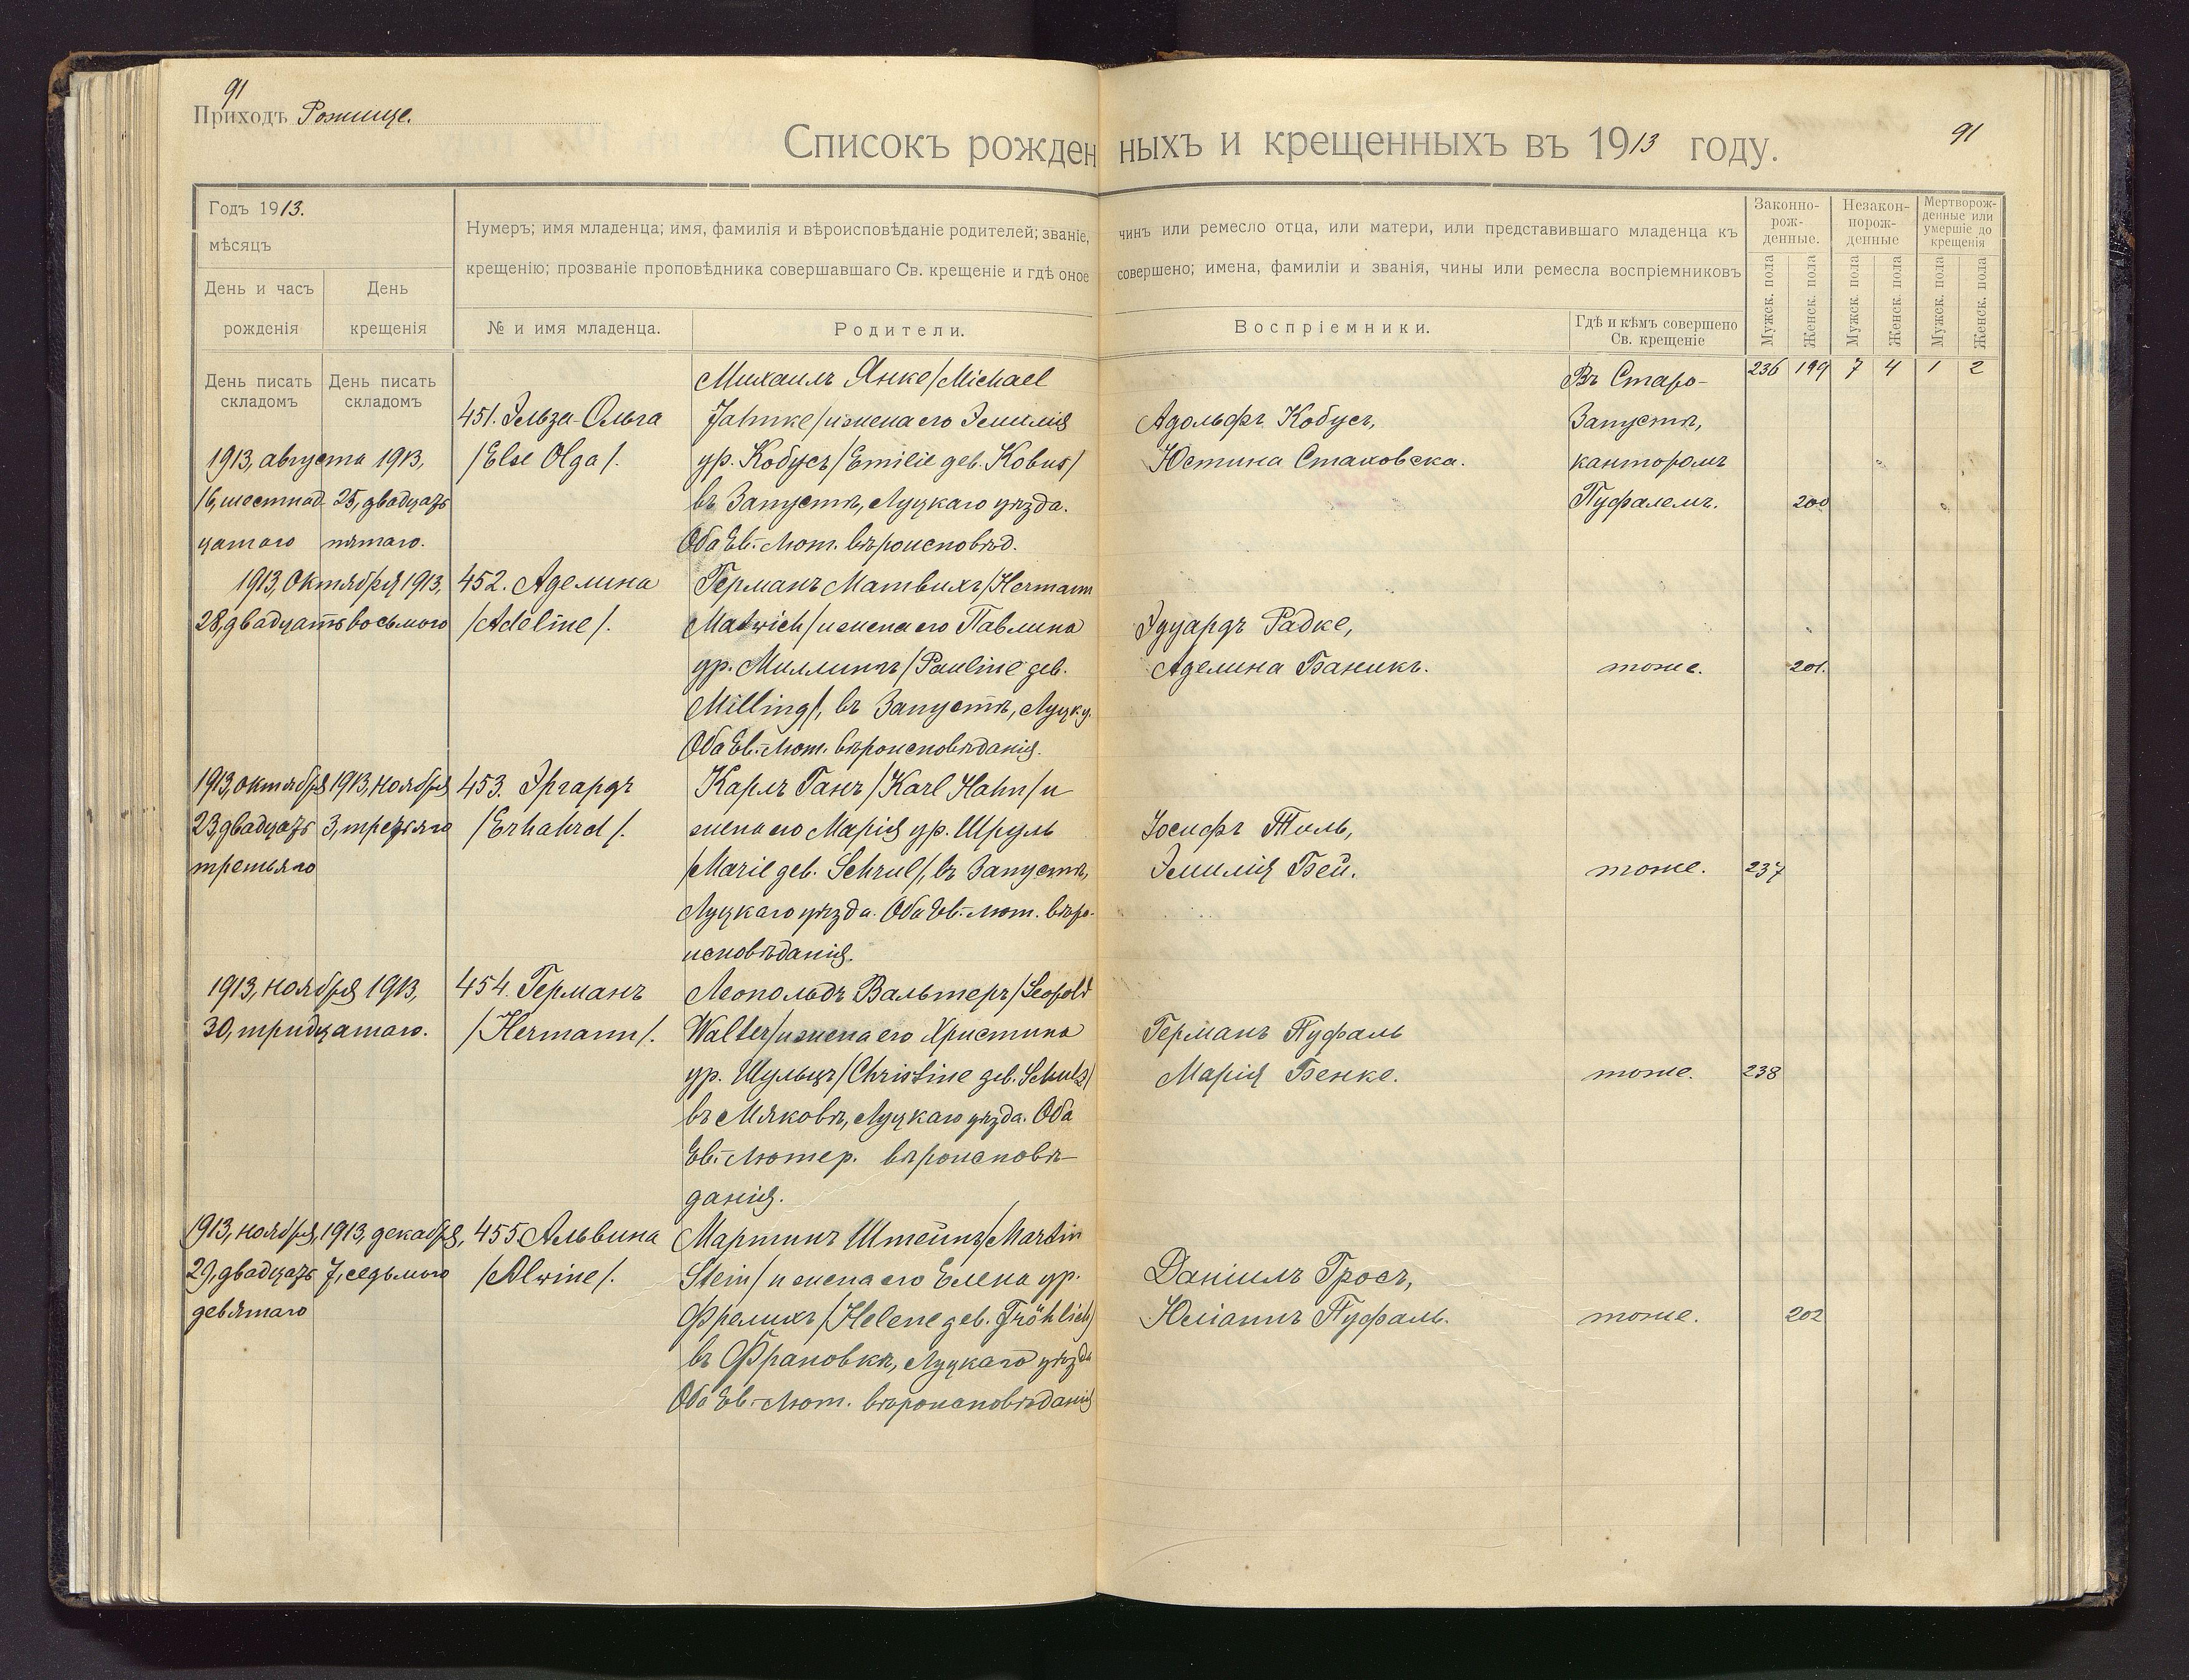 91
Приходъ Рожище.
Списокъ рожденныхъ и крещенныхъ въ 1913 году.
91
Годъ 1913.
мѣсяцъ
День и часъ рожденія
День крещенія
Нумеръ; имя младенца; имя, фамилія и вѣроисповѣданіе родителей; званіе, чинъ или ремесло отца, или матери, или представившаго младенца къ
крещенію; прозваніе проповѣдника совершавшаго Св. крещеніе и гдѣ оное совершено; имена, фамиліи и званія, чины или ремесла воспріемниковъ
№ и имя младенца.
Родители.
Воспріемники.
Гдѣ и кѣмъ совершено
Св. крещеніе
Законно-
рож-
денные.
Незакон-
порож-
денные
Мертворож-
денные или
умершіе до
крещенія
Мужск. пола
Женск. пола
Мужск. пола
Женск. пола
Мужск. пола
Женск. пола
День писать
складомъ
День писать
складомъ
236 199 7 4 1 2
1913, августа 1913,
16, шестнад- 25, двадцать
цатаго пятаго.
451. Эльза-Ольга
/Else Olga/.
Михаилъ Янке /Michael
Jahnke/ и жена его Эмилія
ур. Кобусъ /Emilie geb. Kobus/
въ Запустѣ, Луцкаго уѣзда.
Оба Ев.-Лют. вѣроисповѣд.
Адольфъ Кобусъ,
Юстина Стаховска.
Въ Старо-
Запустѣ,
канторомъ
Пуфалемъ.
200
1913, Октября 1913,
28, двадцать восьмого
452. Аделина
/Adeline/.
Германъ Матвихъ /Hermann
Matwich/ и жена его Павлина
ур. Миллингъ /Pauline geb.
Milling/, въ Запустѣ, Луцк. у.
Оба Ев.-Лют. вѣроисповѣданія.
Эдуардъ Радке,
Аделина Баникъ.
тоже.
201.
1913, октября 1913, ноября
23, двадцать 3, третьяго
третьяго
453. Эргардъ
/Erhahrd/.
Карлъ Ганъ /Karl Hahn/ и
жена его Марія ур. Шруль
/Marie geb. Schrul/, въ Запустѣ,
Луцкаго уѣзда. Оба Ев.-Лют. вѣро-
исповѣданія.
Іосифъ Тиль,
Эмилія Бей.
тоже.
237
1913, ноября 1913,
30, тридцатаго.
454. Германъ
/Hermann/.
Леопольдъ Вальтеръ /Leopold
Walter/ и жена его Христина
ур. Шульцъ /Christine geb. Schulz/
въ Мяковѣ, Луцкаго уѣзда. Оба
Ев.-Лютер. вѣроисповѣ-
данія.
Германъ Пуфаль
Марія Бенке.
тоже.
238
1913, ноября, 1913, декабря,
29, двадцать 7, седьмого
девятаго
455 Альвина
/Alwine/.
Мартинъ Штейнъ /Martin
Stein/ и жена его Елена ур.
Фрелихъ /Helene geb. Fröhlich/
въ Франовкѣ, Луцкаго уѣзда
Оба Ев.-Лют. вѣроисповѣданія
Даніилъ Гросъ,
Юліанна Пуфаль.
тоже.
202